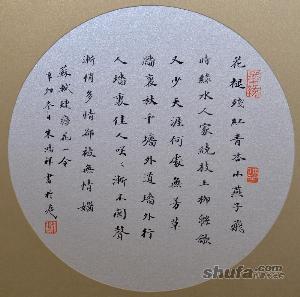 花褪残红青杏小燕子飛
時綠水人家繞枝上柳綿
又少天涯何處無芳草
牆裏秋千墻外道墻外行
人墻裏佳人笑笑漸不聞聲
漸悄多情却被無情惱
蘇軾蝶戀花一令
辛卯冬日朱鴻祥書於
shufa.com